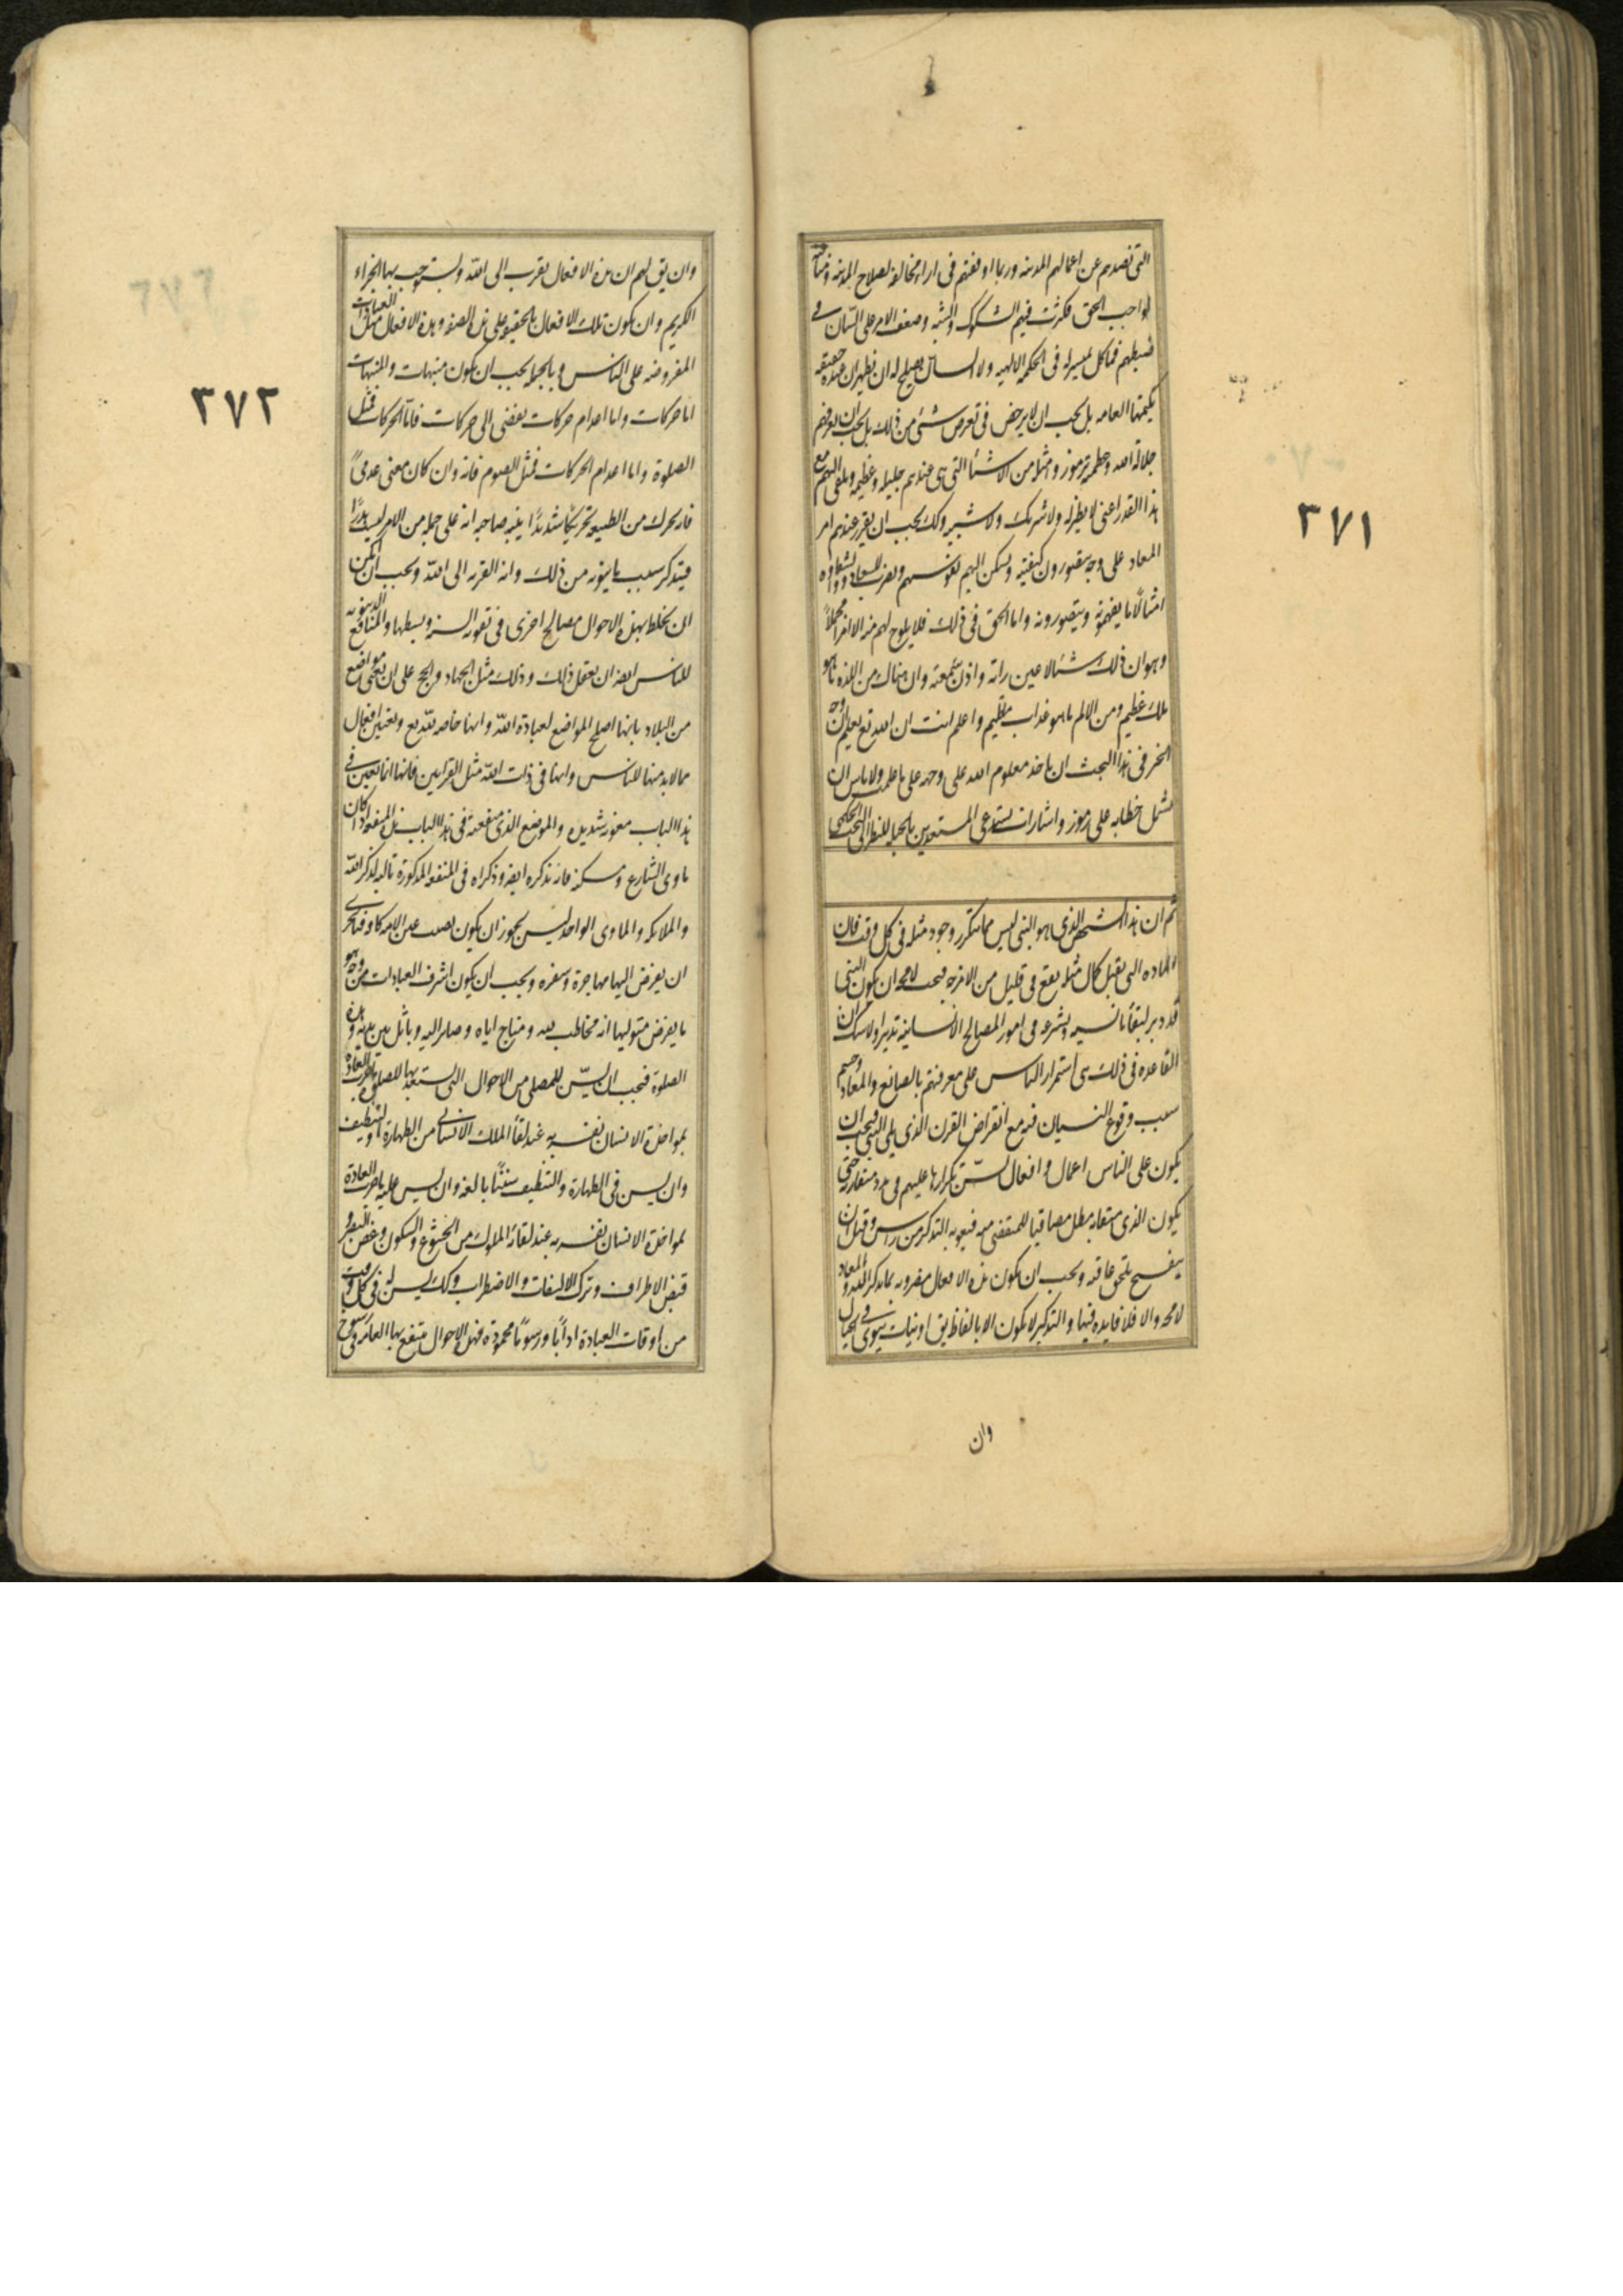 التى تصدهم عن اعمالهم المدنيه وربما اوقعتهم فى اراء مخالفه لصلاح المدينه ومنافيه
لواجب الحق فكثرت فيهم الشكوك والشبه وصعف الامر على السان فى
ضبطهم فما كل بميسر له فى الحكمه الالهيه ولا السان يصلح له ان يظهر ان عنده حقيقه
يكتمها العامه بل يجب ان لا يرخص فى تعرض شئ من ذلك بل يجب ان يعرفهم
جلاله الله وعظمته برموز وامثله من الاشيأ التى هى عندهم جليله وعظيمه ويلقى اليهم مع
هذا القدر اعنى لا نظير له ولا شريك ولا شبيه وكك يجب ان يقرر عندهم امر
المعاد على وجه يتصورون كيفيته ويسكن اليهم نفوسهم ويضرب للسعاده والشقاوه
امثالاً ما يفهمونه ويتصورونه واما الحق فى ذلك فلا يلوح لهم منه الا امراً مجملاً
وهو ان ذلك شئ لا عين راته ولا اذن سمعته وان هناك من اللذه ما هو
ملك عظيم ومن الالم ما هو عذاب مقيم واعلم انت ان الله تع يعلم ان وجه
الخير فى هذا البحث ان ياخذ معلوم الله على وجهه على ما علمت ولا باس ان
يشمل خطابه على رموز واشارات يستدعى المستعدين بالجبله للنظر الى البحث الحكمى
ثم ان هذا الشخص الذى هو النبى ليس مما يتكرر وجود مثله فى كل وقت فان
الماده التى يقبل كمال مثله يقع فى قليل من الامزجه فيجب لامحه ان يكون النبى
قد دبر لبقأ ما يسنه ويشرعه فى امور المصالح الانسانيه تدبيرا ولا شك ان
القاعده فى ذلك هى استمرار الناس على معرفتهم بالصانع والمعاد وحسم
سبب وقوع النسيان فيه مع انقراض القرن الذى يلى النبى فيجب ان
يكون على الناس اعمال وافعال يسن تكرارها عليهم فى مدد متقاربه حتى
يكون الذى ميقاته بطل مصاقبا للمقتضى منه فيعود به التذكر من راس وقبل ان
ينفسخ يلحق عاقبه ويجب ان يكون هذه الافعال مقرونه بما يذكر الله والمعاد
لامحه والا فلا فايده فيها والتذكير لا يكون الا بالفاظ يق او نيات ينوى فى الخيال
وان
٣٧١
وان يق لهم ان هذه الافعال يقرب الى الله ويستوجب بها الجزاء
الكريم وان يكون تلك الافعال بالحقيقه على هذه الصفه وهذه الافعال مثل العبادات
المفروضه على الناس وبالجمله يجب ان يكون منبهات والمنبهات
اما حركات واما اعدام حركات يفضى الى حركات فاما الحركات فمثل
الصلوة واما اعدام الحركات فمثل الصوم فانه وان كان معنى عدمياً
فانه يحرك من الطبيعه تحريكاً شديداً ينبه صاحبه انه على جمله من الامر ليست هدراً
فيتذكر سبب ما ينويه من ذلك وانه القربه الى الله ويجب ان امكن
ان يخلط بهذه الاحوال مصالح اخرى فى تقويه السنه وبسطها والمنافع الدنيويه
للناس ايضه ان يفعل ذلك وذلك مثل الجهاد والحج على ان يعين مواضع
من البلاد بانها اصلح المواضع لعبادة الله وانها خاصه لله تع ويعين افعال
مما لا بد منها للناس وانها فى ذات الله مثل القرابين فانها انما يعين فى
هذا الباب معونه شديده والموضع الذى منفعته فى هذا الباب هذه المنفعه اذا كان
ماوى الشارع ومسكنه فانه يذكره ايضه وذكراه فى المنفعه المذكورة تاليه لذكر الله
والملائكه والماوى الواحد ليس يجوز ان يكون نصب عين الامه كافه فبالحرى
ان يفرض اليها مهاجرة وسفره ويجب ان يكون اشرف العبادات من وجه هو
ما يفرض متوليها انه مخاطب لله ومناج اياه وصاير اليه وماثل بين يديه وهذه
الصلوة فيجب ان يسن للمصلى من الاحوال التى يستعد بها للصلوة ما جرت العاده
بمواخذة الانسان نفسه به عند لقأ الملك الانسانى من الطهارة والتنظيف
وان يسن فى الطهارة والتنظيف سنناً بالغه وان يسن عليه ما جرت العادة
بمواخذة الانسان نفسه به عند لقائه الملوك من الخشوع والسكون وغض البصر و
قبض الاطراف وترك الالتفات والاضطراب وكك يسن له فى كل وقت
من اوقات العبادة اداباً ورسوماً محمودة فهذه الاحوال ينتفع بها العامه فى رسوخ
٣٧٢